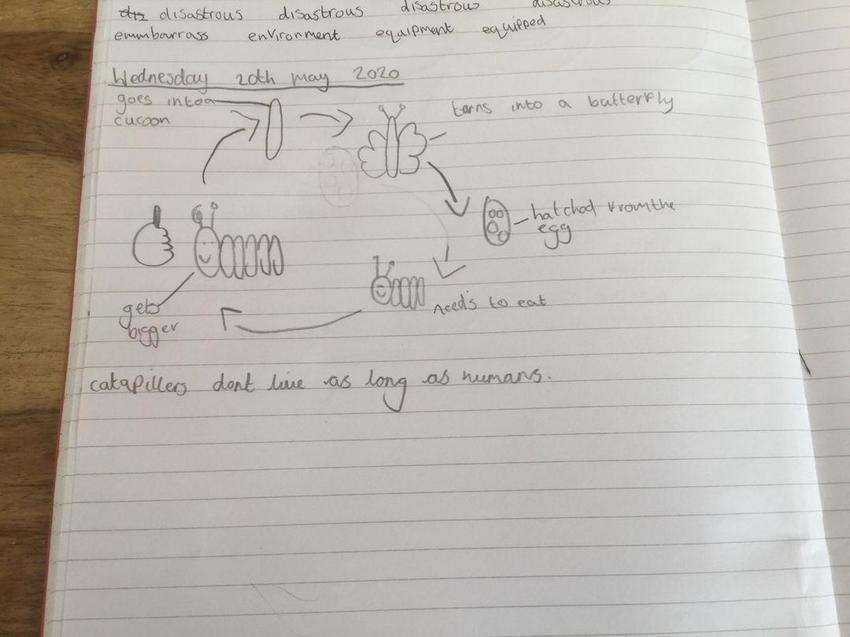 disastrous disastrous disastrous disastrous
emmbarrass environment equipment equipped
Wednesday 20th may 2020
goes into a
cucoon
turns into a butterfly
hatched from the
egg
needs to eat
gets
bigger
catapillers dont live as long as humans.